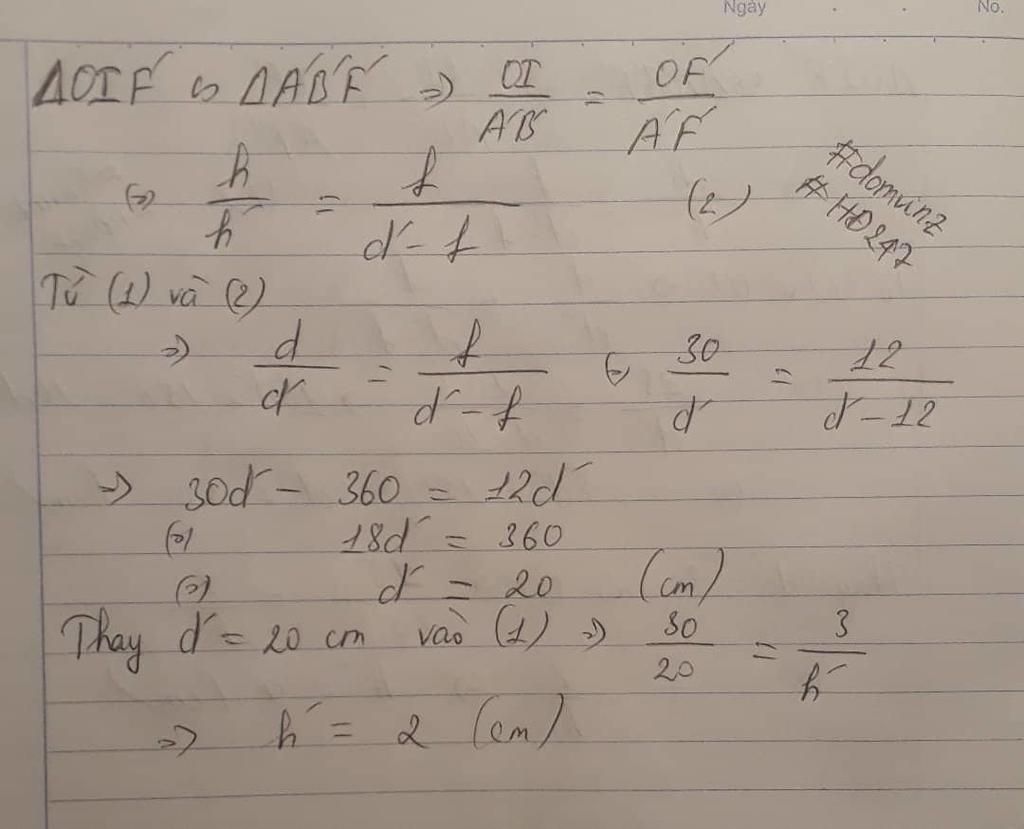 Ngày No.
ΔOIF' ∽ ΔA'B'F' => OI/A'B' = OF'/A'F'
(=) h/h' = f/(d' - f) (2)
#domunz
#HĐ247
Từ (1) và (2)
=> d/d' = f/(d' - f) (=) 30/d' = 12/(d' - 12)
=> 30d' - 360 = 12d'
(=) 18d' = 360
(=) d' = 20 (cm)
Thay d' = 20 cm vào (1) => 30/20 = 3/h'
=> h' = 2 (cm)